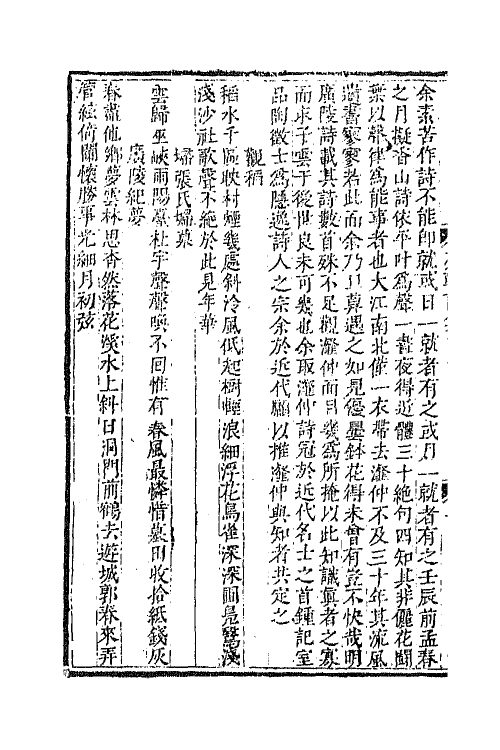 余素苦作詩不能卽就或日一就者有之或月一就者有之壬辰前孟春
之月擬香山詩依平叶爲聲一晝夜得近體三十絕句四知其非儷花鬭
葉以聲律爲能事者也大江南北僅一衣帶去瀅仲不及三十年其流風
遺書寥寥若此而余乃旦莫遇之如見優曇鉢花得未曾有豈不快哉明
廣陵詩載其詩數首殊不足觀瀅仲面目幾爲所掩以此知識眞者之寡
而求子雲于後世良未可幾也余取瀅仲詩冠於近代名士之首鍾記室
品陶徵士爲隱逸詩人之宗余於近代願以推瀅仲與知者共定之
觀稻
稻水千區映村煙幾處斜冷風低起樹輕浪細浮花鳥雀深深圃鳧鷖淺
淺沙社歌聲不絕於此見年華
婦張氏婦墓
雲歸巫峽雨陽臺杜宇聲聲喚不囘惟有春風最憐惜墓田收拾紙錢灰
廣陵紀夢
春盡他鄉夢雲林思杳然落花溪水上斜日洞門前鶴去遊城郭春來弄
管絃倚闌懷勝事光細月初弦